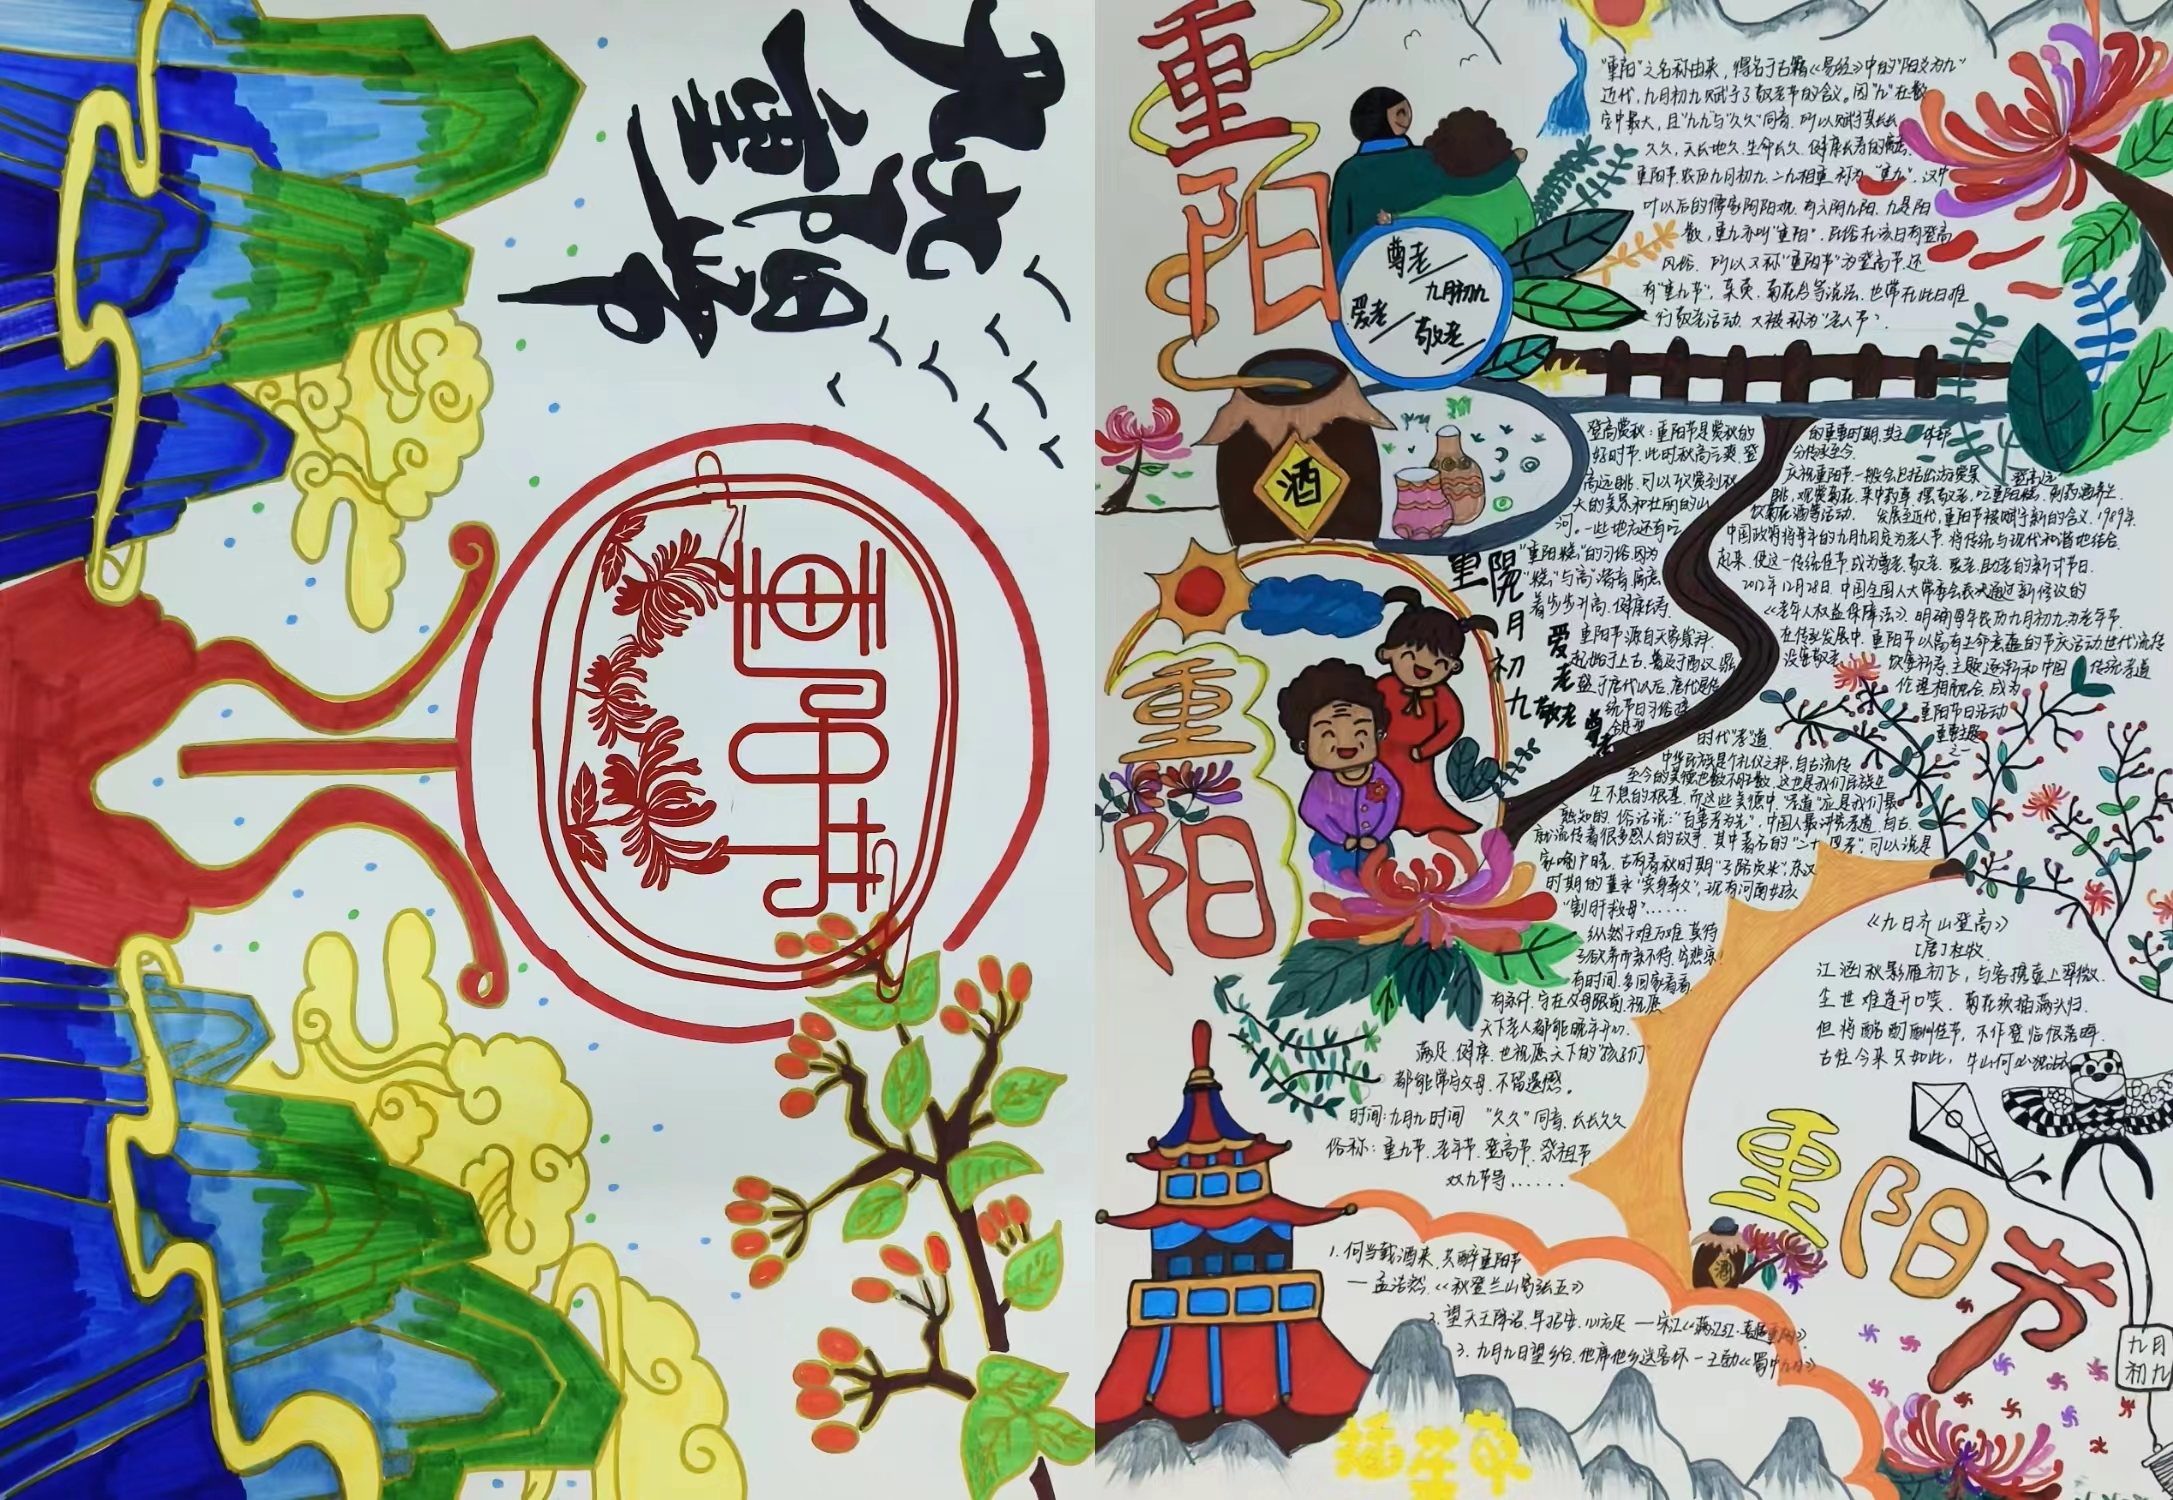 九九
重阳节
重阳
"重阳"之名称由来，得名于古籍《易经》中的"阳爻为九"
近代，九月初九赋予了敬老节的含义。因"九"在数
字中最大，且"九九与"久久"同音，所以赋予其长长
久久，天长地久，生命长久，健康长寿的寓意。
重阳节，农历九月初九，二九相重，称为"重九"，汉中
叶以后的儒家阴阳观，有六阴九阳，九是阳
数，重九亦叫"重阳"。民俗在该日有登高
风俗，所以又称"重阳节"为登高节，还
有"重九节"，茱萸、菊花台等说法，也常在此日推
行敬老活动，又被称为"老人节"。
尊老
九月初九
爱老
敬老
酒
登高赏秋：重阳节是赏秋的
好时节，此时秋高气爽，登
高远眺，可以欣赏到秋
天的美景和壮丽的山
河。一些地方还有吃
"重阳糕"的习俗，因为
"糕"与"高"谐音，寓意
着步步升高，健康长寿
重阳节源自天象崇拜，
起始于上古，普及于西汉，鼎
盛于唐代以后，唐代是传
统节日习俗
的重要时期，其主
分传承至今
庆祝重阳节一般会包括出游赏景、登高远
眺、观赏菊花、
饮菊花酒等活动。发展至近代，重阳节被赋予新的含义，1989年
中国政府将每年的九月九日定为老人节，将传统与现代和谐地结合
起来，使这一传统佳节成为尊老、敬老、爱老、助老的新式节日。
2012年12月28日，中国全国人大常委会表决通过新修改的
《老年人权益保障法》，明确每年农历九月初九为老年节
在传承发展中，重阳节以富有生命意蕴的节庆活动世代流传
饮宴祈寿主题逐渐和中国传统孝道
伦理相融合，成为
重阳节日活动
重要主题
之一
重陽
月初九
爱老
敬老
尊老
重阳
时代"孝"道
中华民族是个礼仪之邦，自古流传
至今的美德也数不胜数，这也是我们民族生
生不息的根基，而这些美德中，"孝道"应是我们最
熟知的，俗话说："百善孝为先"，中国人最讲究孝道，自古
就流传着很多感人的故事，其中著名的"二十四孝"，可以说是
家喻户晓，古有春秋时期"子路负米"，东汉
时期的董永"卖身葬父"，现有河南女孩
"割肝救母"……
纵然千难万难，莫待
子欲养而亲不待，
有时间，多回家看看，
有条件，守在父母跟前，祝愿
天下老人都能晚年开心、
满足、健康，也祝愿天下的"孩子们"
都能常守父母，不留遗憾。
时间：九月九时间 "久久"同音，长长久久
俗称：重九节、老年节、登高节、祭祖节
双九节等……
《九日齐山登高》
[唐]杜牧
江涵秋影雁初飞，与客携壶上翠微
尘世难逢开口笑，菊花须插满头归
但将酩酊酬佳节，不作登临恨落晖
古往今来只如此，牛山何必独沾
重阳节
酒
九月
初九
1. 何当载酒来，共醉重阳节
— 孟浩然《秋登兰山寄张五》
2. 望天王降诏，早招安，心方足 — 宋江《满江红·喜遇重阳》
3. 九月九日望乡台，他席他乡送客杯 — 王勃《蜀中九日》
插笙草